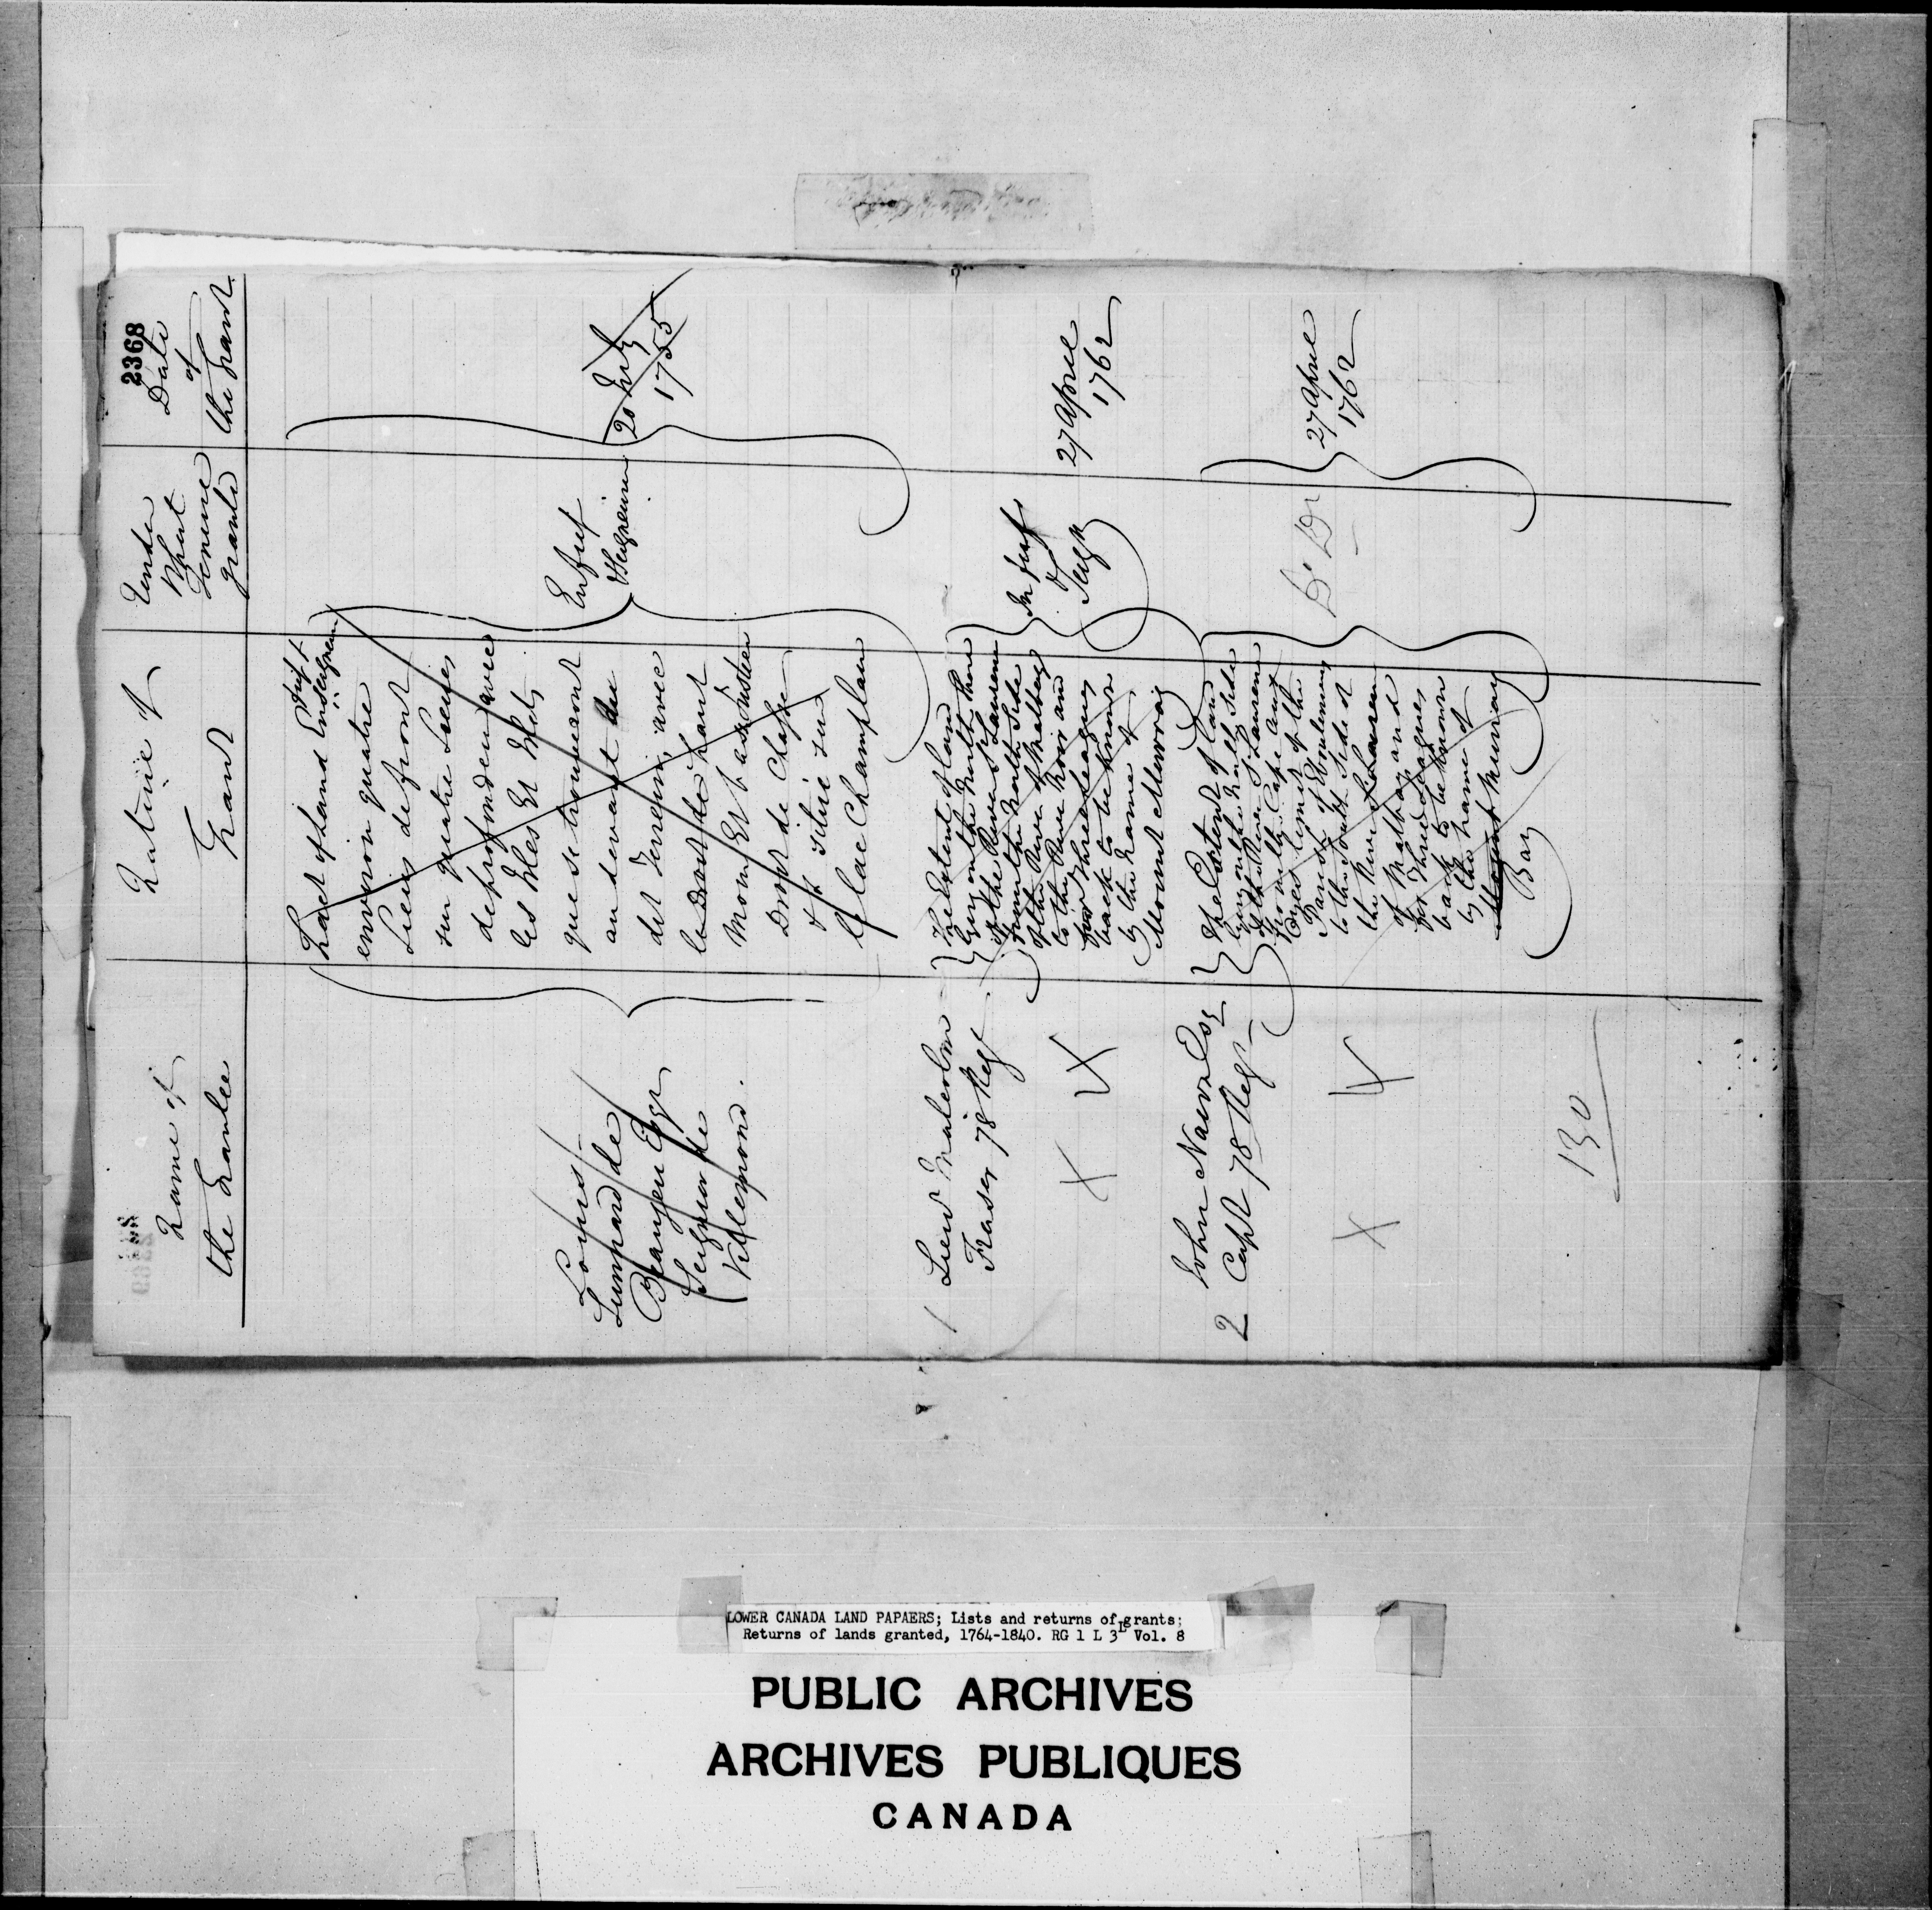 2368
Name of
the Grantee
Nature of
Grant
Under
What
Tenure
granted
Date
of
the Grant
Louis
Lienard de
Beaujeu Esqr
Seigneur de
Villemond.
Tract of land En fief &
Seigneurie
environ quatre
Lieues de front
sur quatre Lieues
de profondeur avec
les Isles Et Ilets
que se trouveront
au devant du
dit Terrein, avec
le Droit de haut
Moyen Et basse Justice
Droit de Chasse
& situé sur
le lac Champlain
En fief
& Seigneurie
20 July
1755
1 Lieut Malcolm
Fraser 78 Regt
The Extent of land
lying on the North Shore
of the River St Laurence
from the North Side
of the River of Malbay
to the River Noir and
for three leagues
back to be known
by the name of
Mount Murray
In fief
&
Seigr
27 April
1762
X X
2 John Nairn Esq
Capt 78 Regt
The Extent of land
lying on the North Side
of the River St Laurence
from the Cape aux
Oyes limit of the
Parish of Eboulemens
to the South Side of
the River
of Malbay and
for Three leagues
back to be known
by the name of
Murray
Bay
Do Do
27 April
1762
X X
130
LOWER CANADA LAND PAPAERS; Lists and returns of grants;
Returns of lands granted, 1764-1840. RG 1 L 3L Vol. 8
PUBLIC ARCHIVES
ARCHIVES PUBLIQUES
CANADA